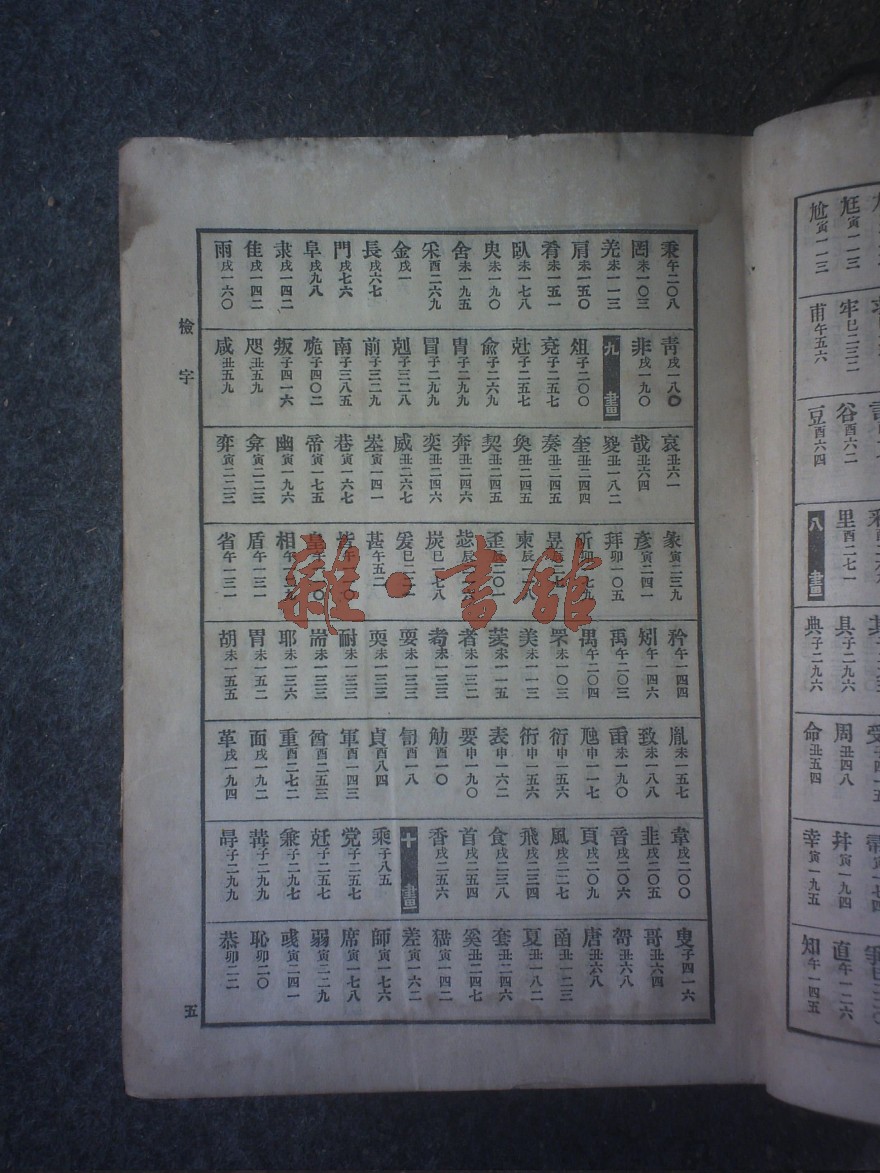 秉午二〇八
罔未一〇三
羌未一一三
肩未一五〇
肴未一五一
臥未一七八
臾未一九〇
舍未一九五
采酉二六九
金戌一
長戌六七
門戌七六
阜戌九八
隶戌一四二
隹戌一四二
雨戌一六〇
青戌一八〇
非戌一九〇
九畫
俎子二〇〇
兗子二五七
兪子二六九
冑子二九九
冒子二九九
剋子三二八
前子三二九
南子三八五
叛子四一六
咫丑五九
咸丑五九
哀丑六一
哉丑六四
奎丑二四四
奏丑二四五
奐丑二四五
契丑二四五
奔丑二四六
奕丑二四六
威丑二六七
巷寅一六七
帝寅一七五
幽寅一九六
弇寅二二三
弈寅二二三
彖寅二三九
彥寅二四一
拜卯一〇五
歪辰二〇一
炭巳一七八
甚午五二
相午
盾午一三一
省午一三一
矜午一四四
矧午一四六
禹午二〇三
禺午二〇四
美未一一三
者未一三二
耇未一三二
耍未一三三
耎未一三三
耐未一三三
耑未一三三
耶未一三六
胃未一五二
胡未一五五
胤未一五七
致未一八八
臿未一九〇
虺申一一七
衍申一五六
衎申一五六
表申一六二
要申一九〇
觔酉一〇
訇酉一八
貞酉八四
軍酉一四三
酋酉二五三
重酉二七二
面戌一九二
革戌一九四
韋戌二〇〇
韭戌二〇五
音戌二〇六
頁戌二〇九
風戌二二七
飛戌二三四
食戌二三八
首戌二五四
香戌二五六
十畫
乘子八五
党子二五七
兢子二五七
兼子二九七
冓子二九九
冔子二九九
叟子四一六
哥丑六四
哿丑六八
唐丑六八
圅丑一二三
夏丑一八二
套丑二四六
奚丑二四七
差寅一六二
師寅一七六
席寅一七八
弱寅二二九
彧寅二四一
恥卯二〇
恭卯二二
檢字
五
雜·書館
尪寅一一三
尬寅一一三
牢巳二三二
甫午五六
谷酉六二
豆酉六四
里酉二七一
八畫
具子二九六
典子二九六
周丑四八
命丑五四
幷寅一九四
幸寅一九五
直午一二六
知午一四五